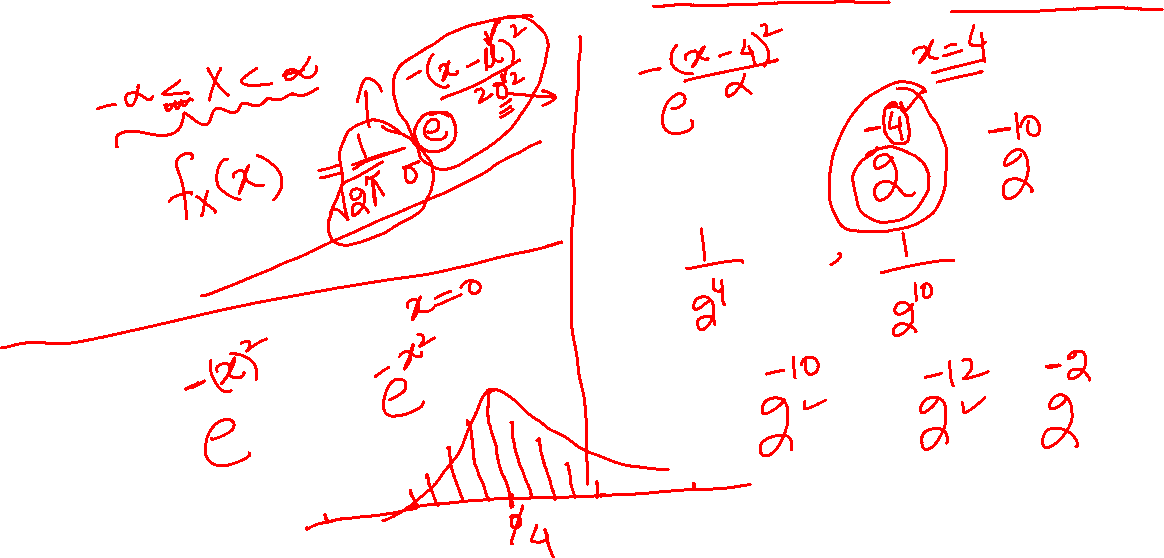 -α ≤ X < α
f_X(x) = 1/(√2π σ) e^(-(x-μ)²/2σ²)
x=0
e^(-(x)²) e^(-x²)
4
e^(-(x-4)²/α) x=4
2^(-4) 2^(-10)
1/2^4 , 1/2^10
2^(-10) 2^(-12) 2^(-2)